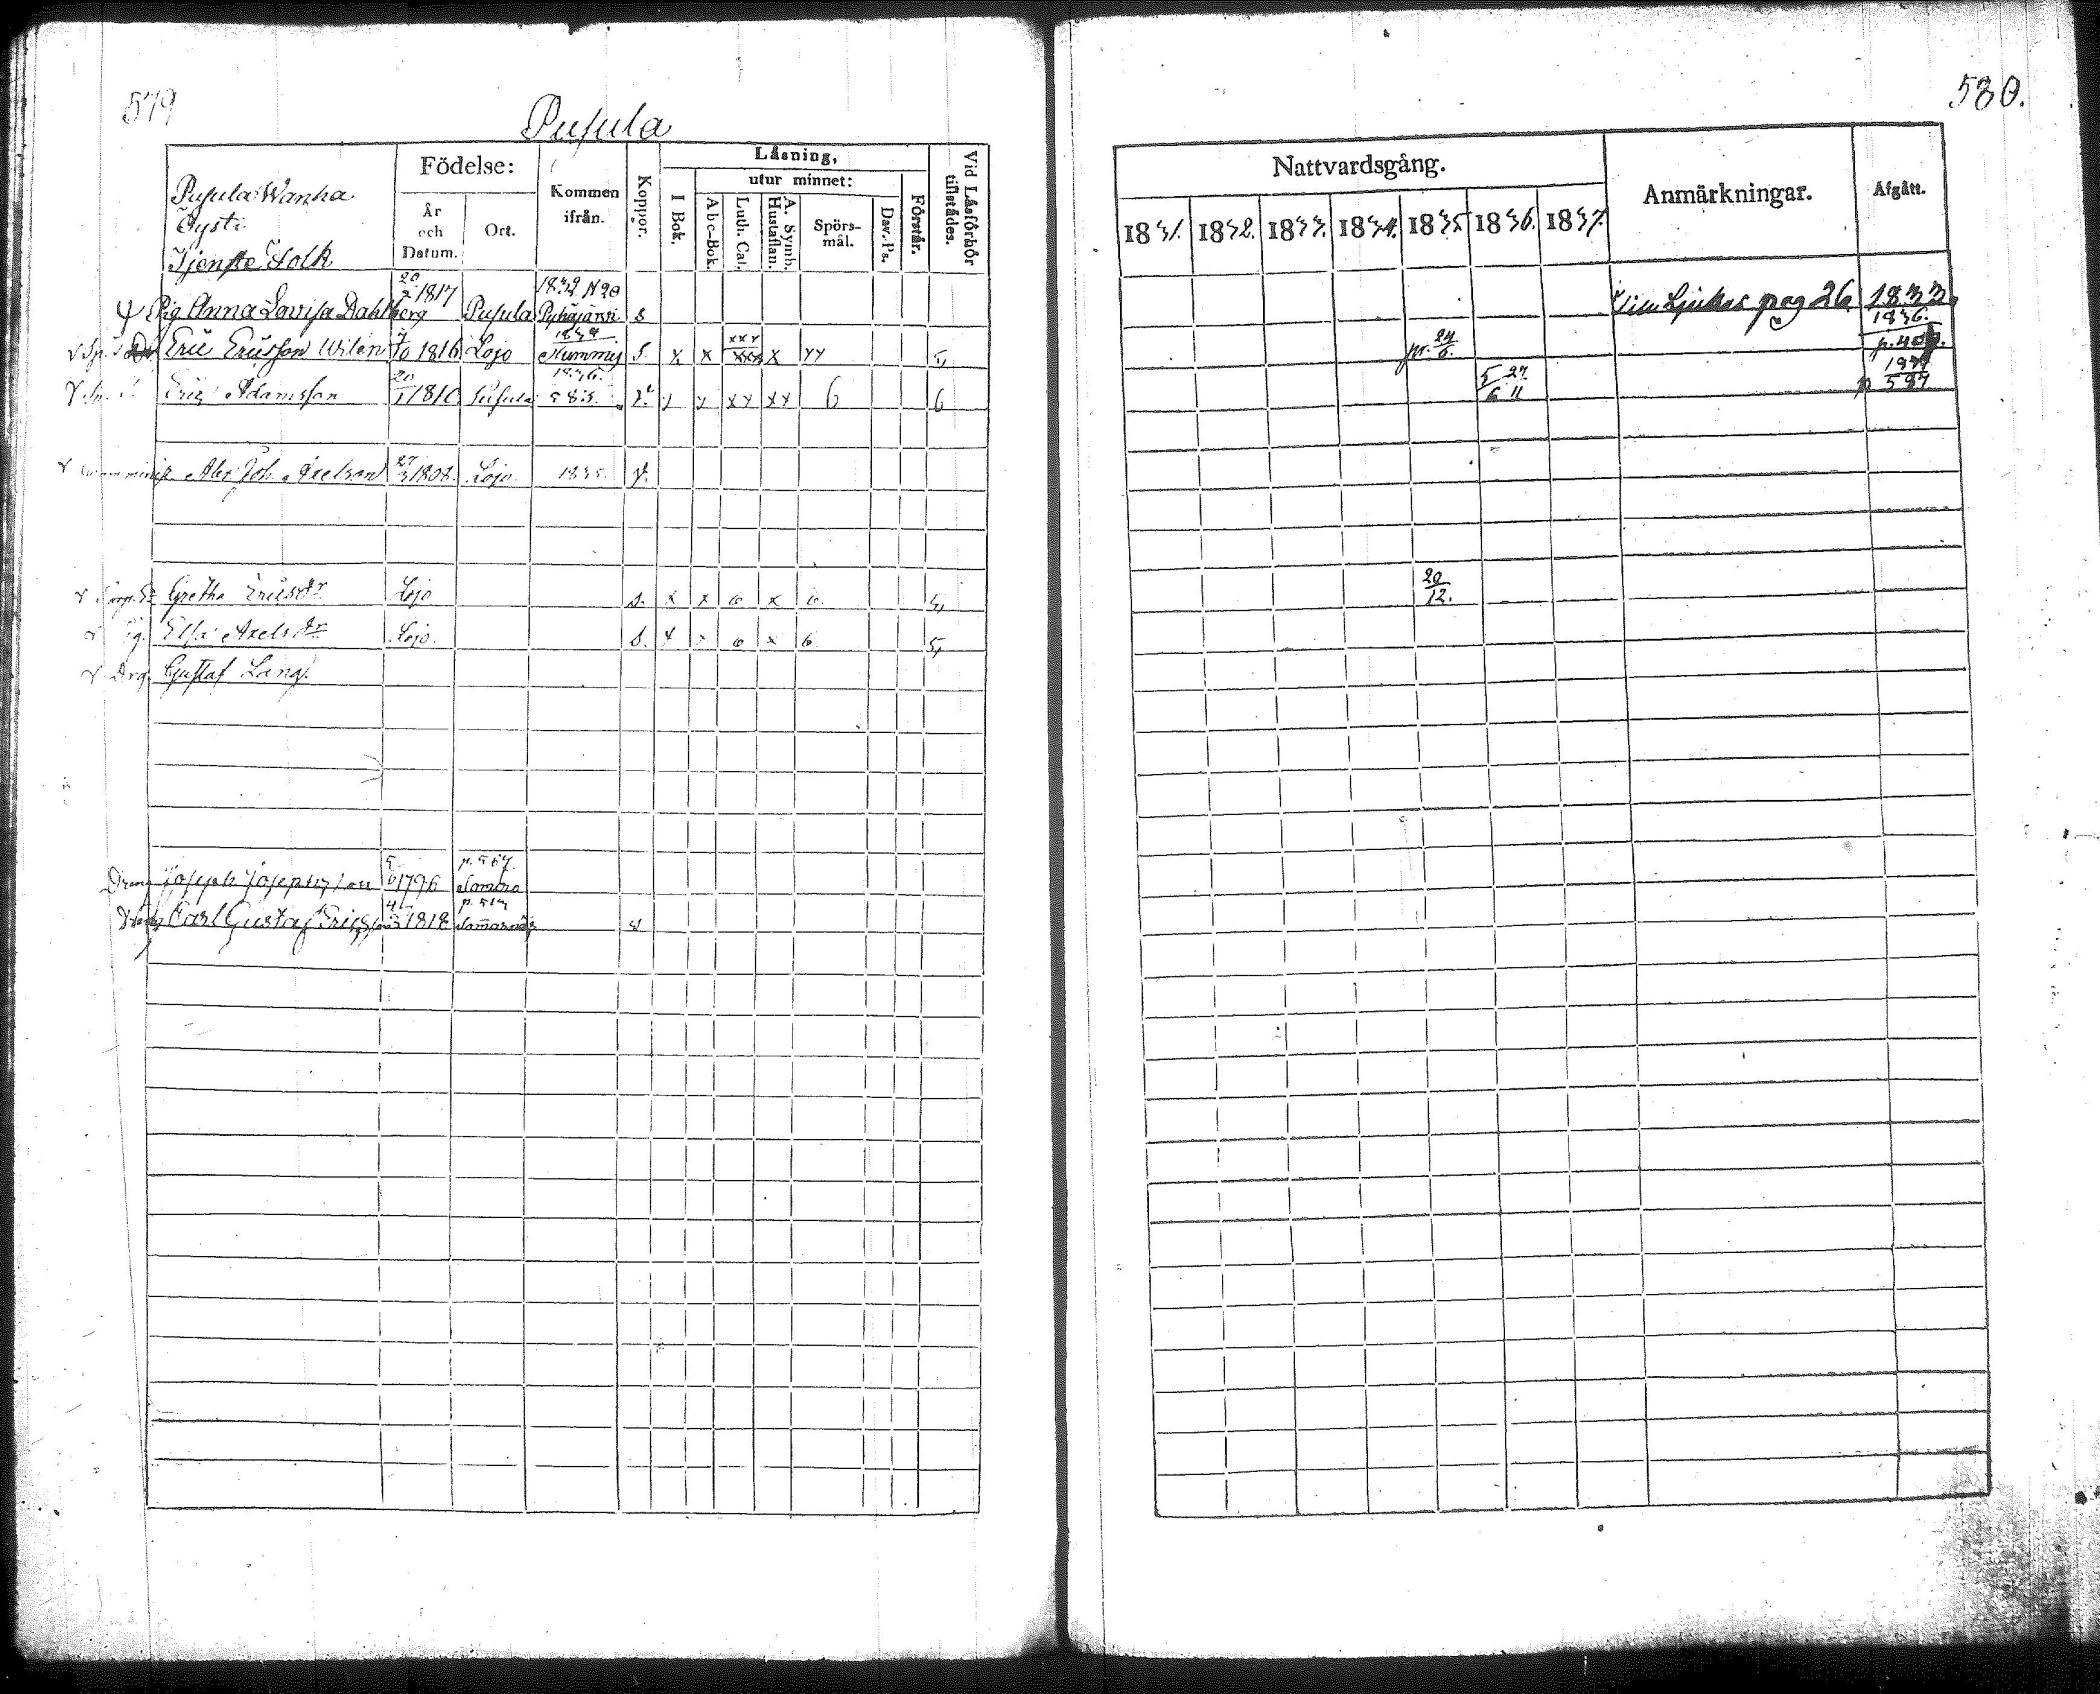 579
Pusula
Pusula Wanha
Tysti
Tjenste Folk
Födelse:
År och Datum.
Ort.
Kommen ifrån.
Koppor.
Läsning,
I Bok.
utur minnet:
Abc-Bok.
Luth. Cat.
A. Symb. Hustaflan.
Spörsmål.
Dav. Ps.
Förstår.
Vid Läsförhör tillstädes.
Pig Anna Lovisa Dahlberg 20/2 1817 Pusula 1832 N 20 Pyhäjärvi s
Eric Ericsson Wilén 7/10 1816 Lojo 1834 Nummis s. x x xxx x yy 5,
Eric Adamsson 20/1 1810 Pusula 1836. 583. x xx xx 6 6
Alex. Joh. Axelsson 27/3 1808. Lojo 1835. v.
Gretha Ericsdr Lojo s. x x 6 x 6. 5,
Pig. Elsa Axelsdr Lojo. s. x x 6 x 6 5,
Drg. Gustaf Lång.
Dräng Joseph Josephsson 5/6 1796 p. 567 Somero
Dräng Carl Gustaf Ericsson 1818 Somarnäs v
580.
Nattvardsgång.
Anmärkningar.
Afgått.
1831. 1832. 1833. 1834. 1835 1836. 1837.
Till Ljukas pag 26 1833.
pr. 24/6. 1836.
5/6 27/11 p 587
20/12.